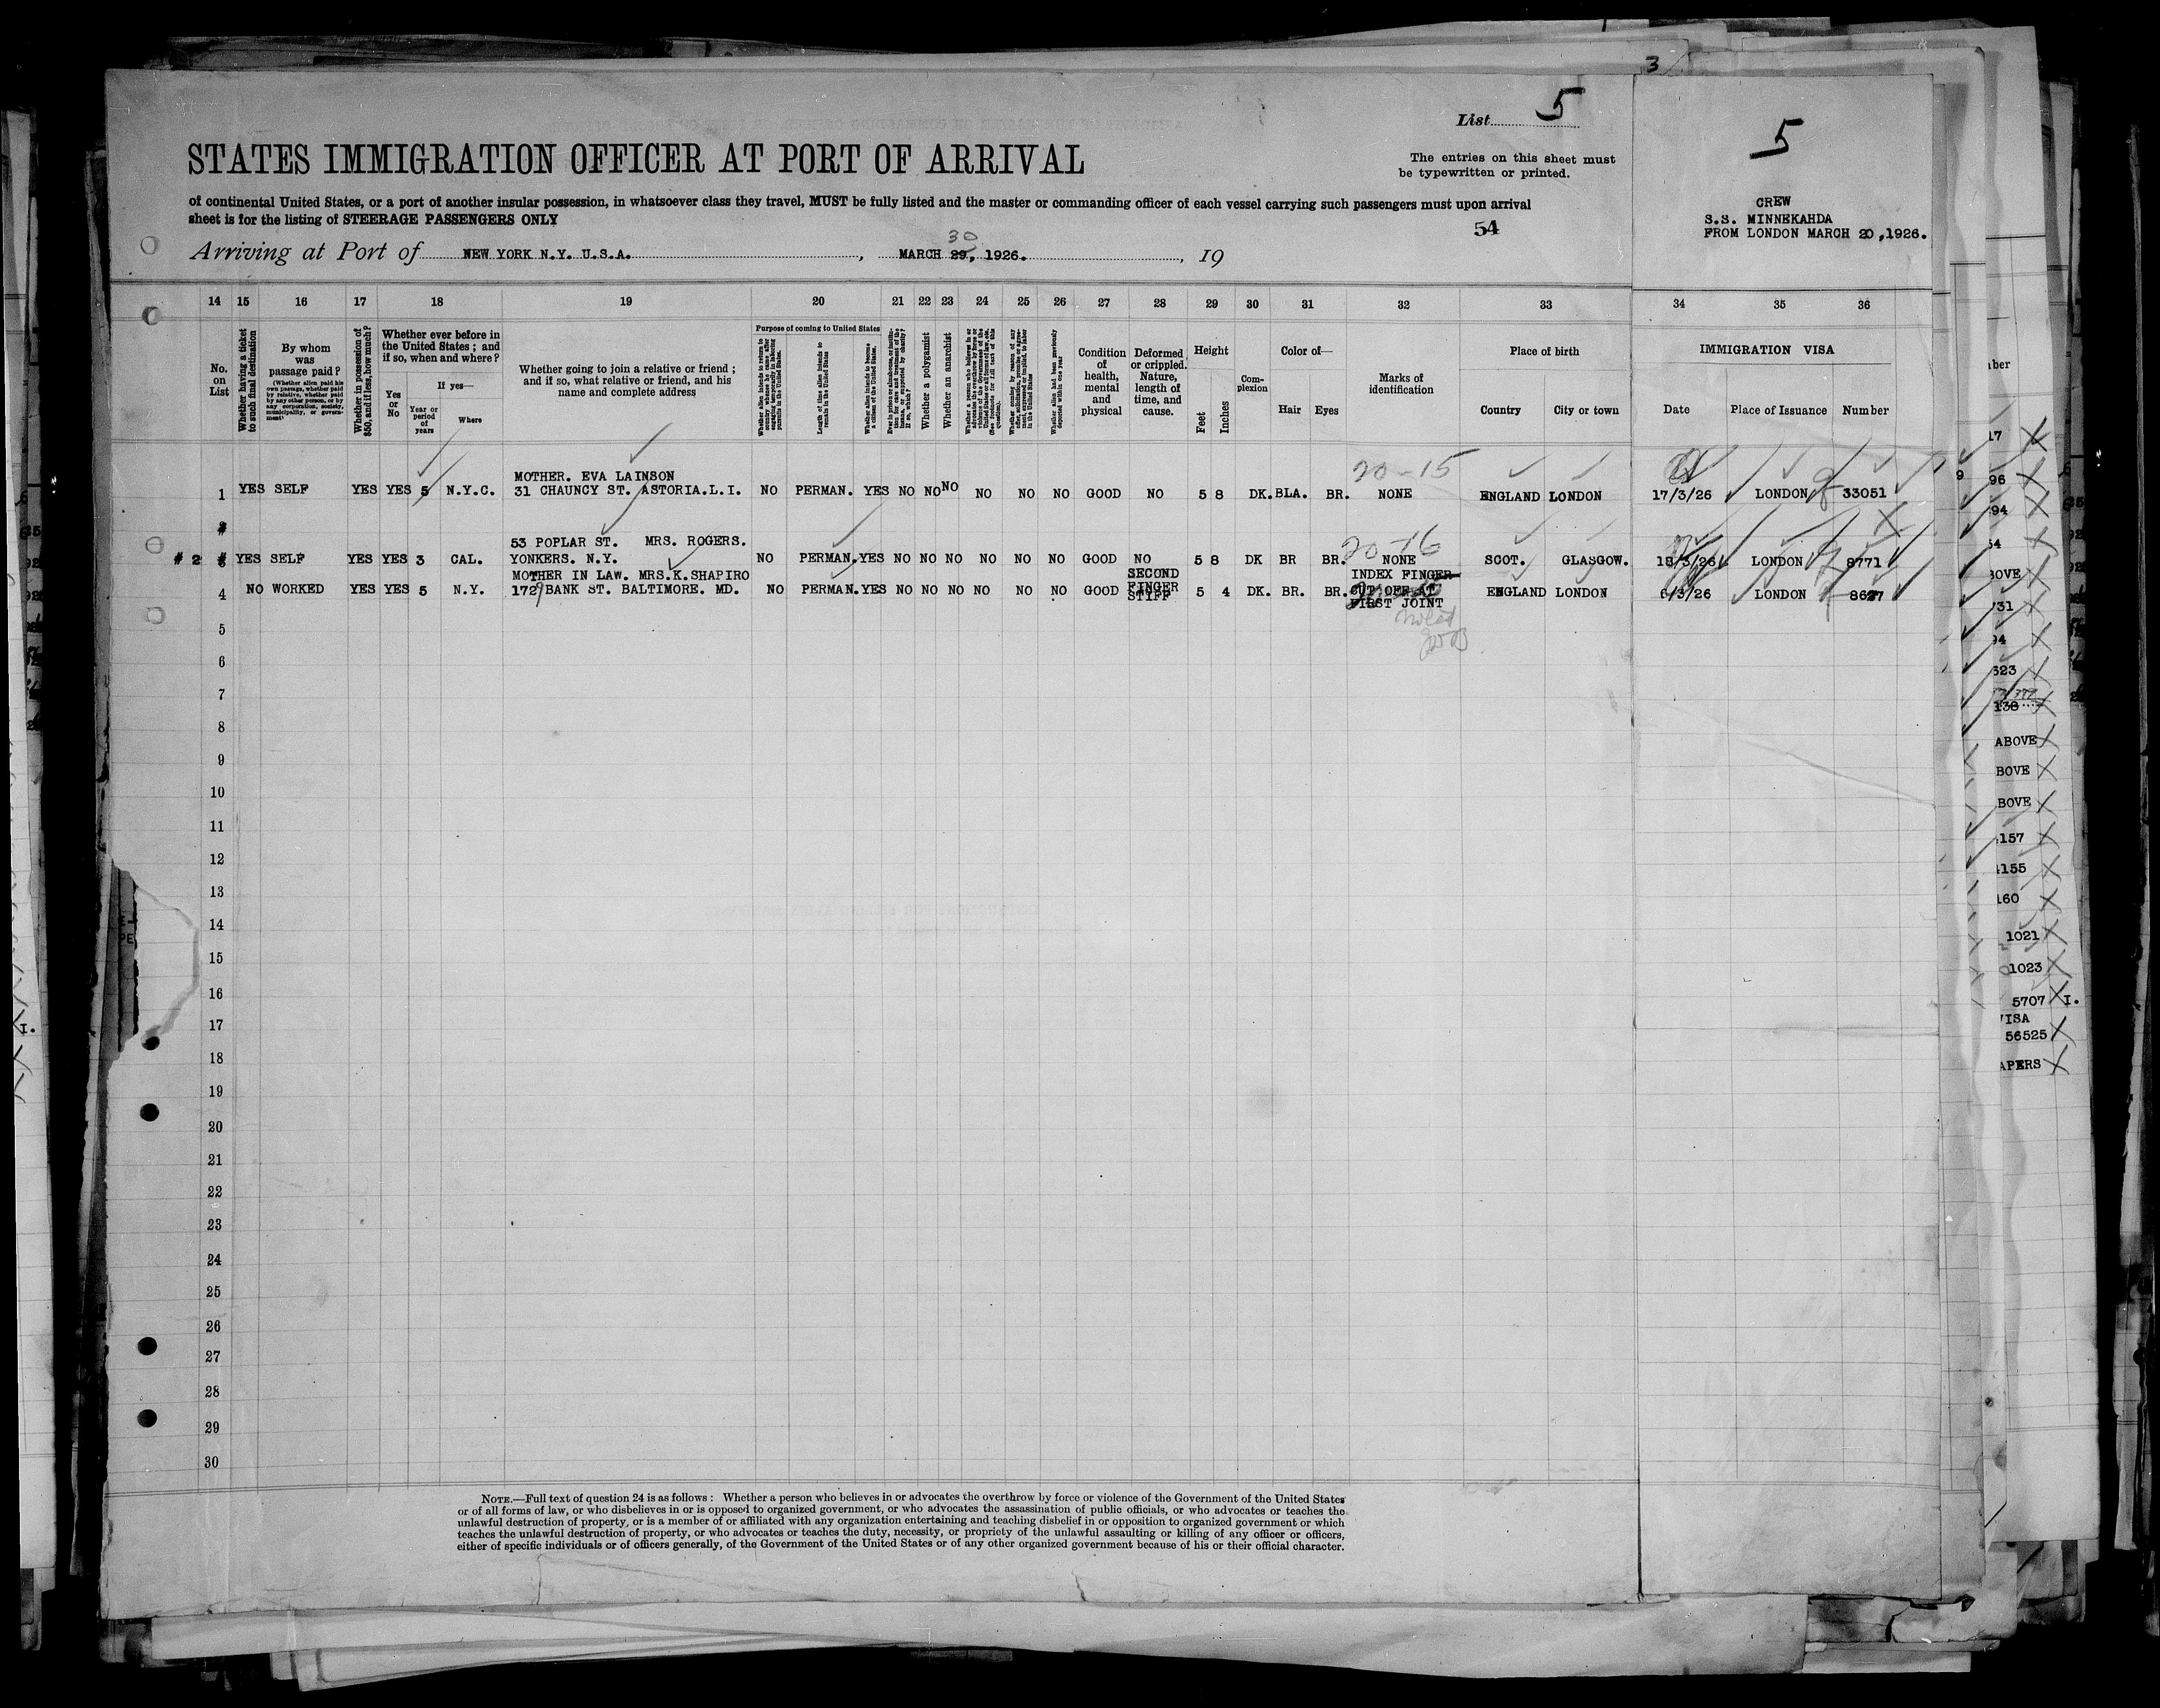 3
List 5
5
STATES IMMIGRATION OFFICER AT PORT OF ARRIVAL
The entries on this sheet must
be typewritten or printed.
of continental United States, or a port of another insular possession, in whatsoever class they travel, MUST be fully listed and the master or commanding officer of each vessel carrying such passengers must upon arrival
sheet is for the listing of STEERAGE PASSENGERS ONLY
54
CREW
S.S. MINNEKAHDA
FROM LONDON MARCH 20, 1926.
30
Arriving at Port of NEW YORK N.Y. U.S.A., MARCH 29, 1926., 19
14 15 16 17 18 19 20 21 22 23 24 25 26 27 28 29 30 31 32 33 34 35 36
No. on List
Whether having a ticket to such final destination
By whom was passage paid?
(Whether alien paid his own passage, whether paid by relative, whether paid by any other person, or by any corporation, society, municipality, or government)
Whether in possession of $50, and if less, how much?
Whether ever before in the United States; and if so, when and where?
Yes or No
If yes—
Year or period of years
Where
Whether going to join a relative or friend; and if so, what relative or friend, and his name and complete address
Purpose of coming to United States
Length of time alien intends to remain in the United States
Whether alien intends to become a citizen of the United States.
Whether a polygamist
Whether an anarchist
Whether alien had been previously deported within one year
Condition of health, mental and physical
Deformed or crippled. Nature, length of time, and cause.
Height
Feet
Inches
Complexion
Color of—
Hair
Eyes
Marks of identification
Place of birth
Country
City or town
IMMIGRATION VISA
Date
Place of Issuance
Number
20-15
MOTHER. EVA LAINSON
1 YES SELF YES YES 5 N.Y.C. 31 CHAUNCY ST. ASTORIA.L.I. NO PERMAN. YES NO NO NO NO NO NO GOOD NO 5 8 DK. BLA. BR. NONE ENGLAND LONDON 17/3/26 LONDON 33051
53 POPLAR ST. MRS. ROGERS.
20-16
# 2 YES SELF YES YES 3 CAL. YONKERS. N.Y. NO PERMAN. YES NO NO NO NO NO NO GOOD NO 5 8 DK BR BR. NONE SCOT. GLASGOW. 18/3/26 LONDON 8771
MOTHER IN LAW. MRS.K.SHAPIRO SECOND INDEX FINGER
4 NO WORKED YES YES 5 N.Y. 1729 BANK ST. BALTIMORE. MD. NO PERMAN. YES NO NO NO NO NO NO GOOD FINGER 5 4 DK. BR. BR. CUT OFF AT ENGLAND LONDON /3/26 LONDON 8627
STIFF FIRST JOINT
noted
5
6
7
8
9
10
11
12
13
14
15
16
17
18
19
20
21
22
23
24
25
26
27
28
29
30
17
96
94
54
BOVE
731
94
623
138
ABOVE
BOVE
BOVE
157
155
160
1021
1023
5707 I.
VISA
56525
APERS
NOTE.—Full text of question 24 is as follows: Whether a person who believes in or advocates the overthrow by force or violence of the Government of the United States
or of all forms of law, or who disbelieves in or is opposed to organized government, or who advocates the assassination of public officials, or who advocates or teaches the
unlawful destruction of property, or is a member of or affiliated with any organization entertaining and teaching disbelief in or opposition to organized government or which
teaches the unlawful destruction of property, or who advocates or teaches the duty, necessity, or propriety of the unlawful assaulting or killing of any officer or officers,
either of specific individuals or of officers generally, of the Government of the United States or of any other organized government because of his or their official character.